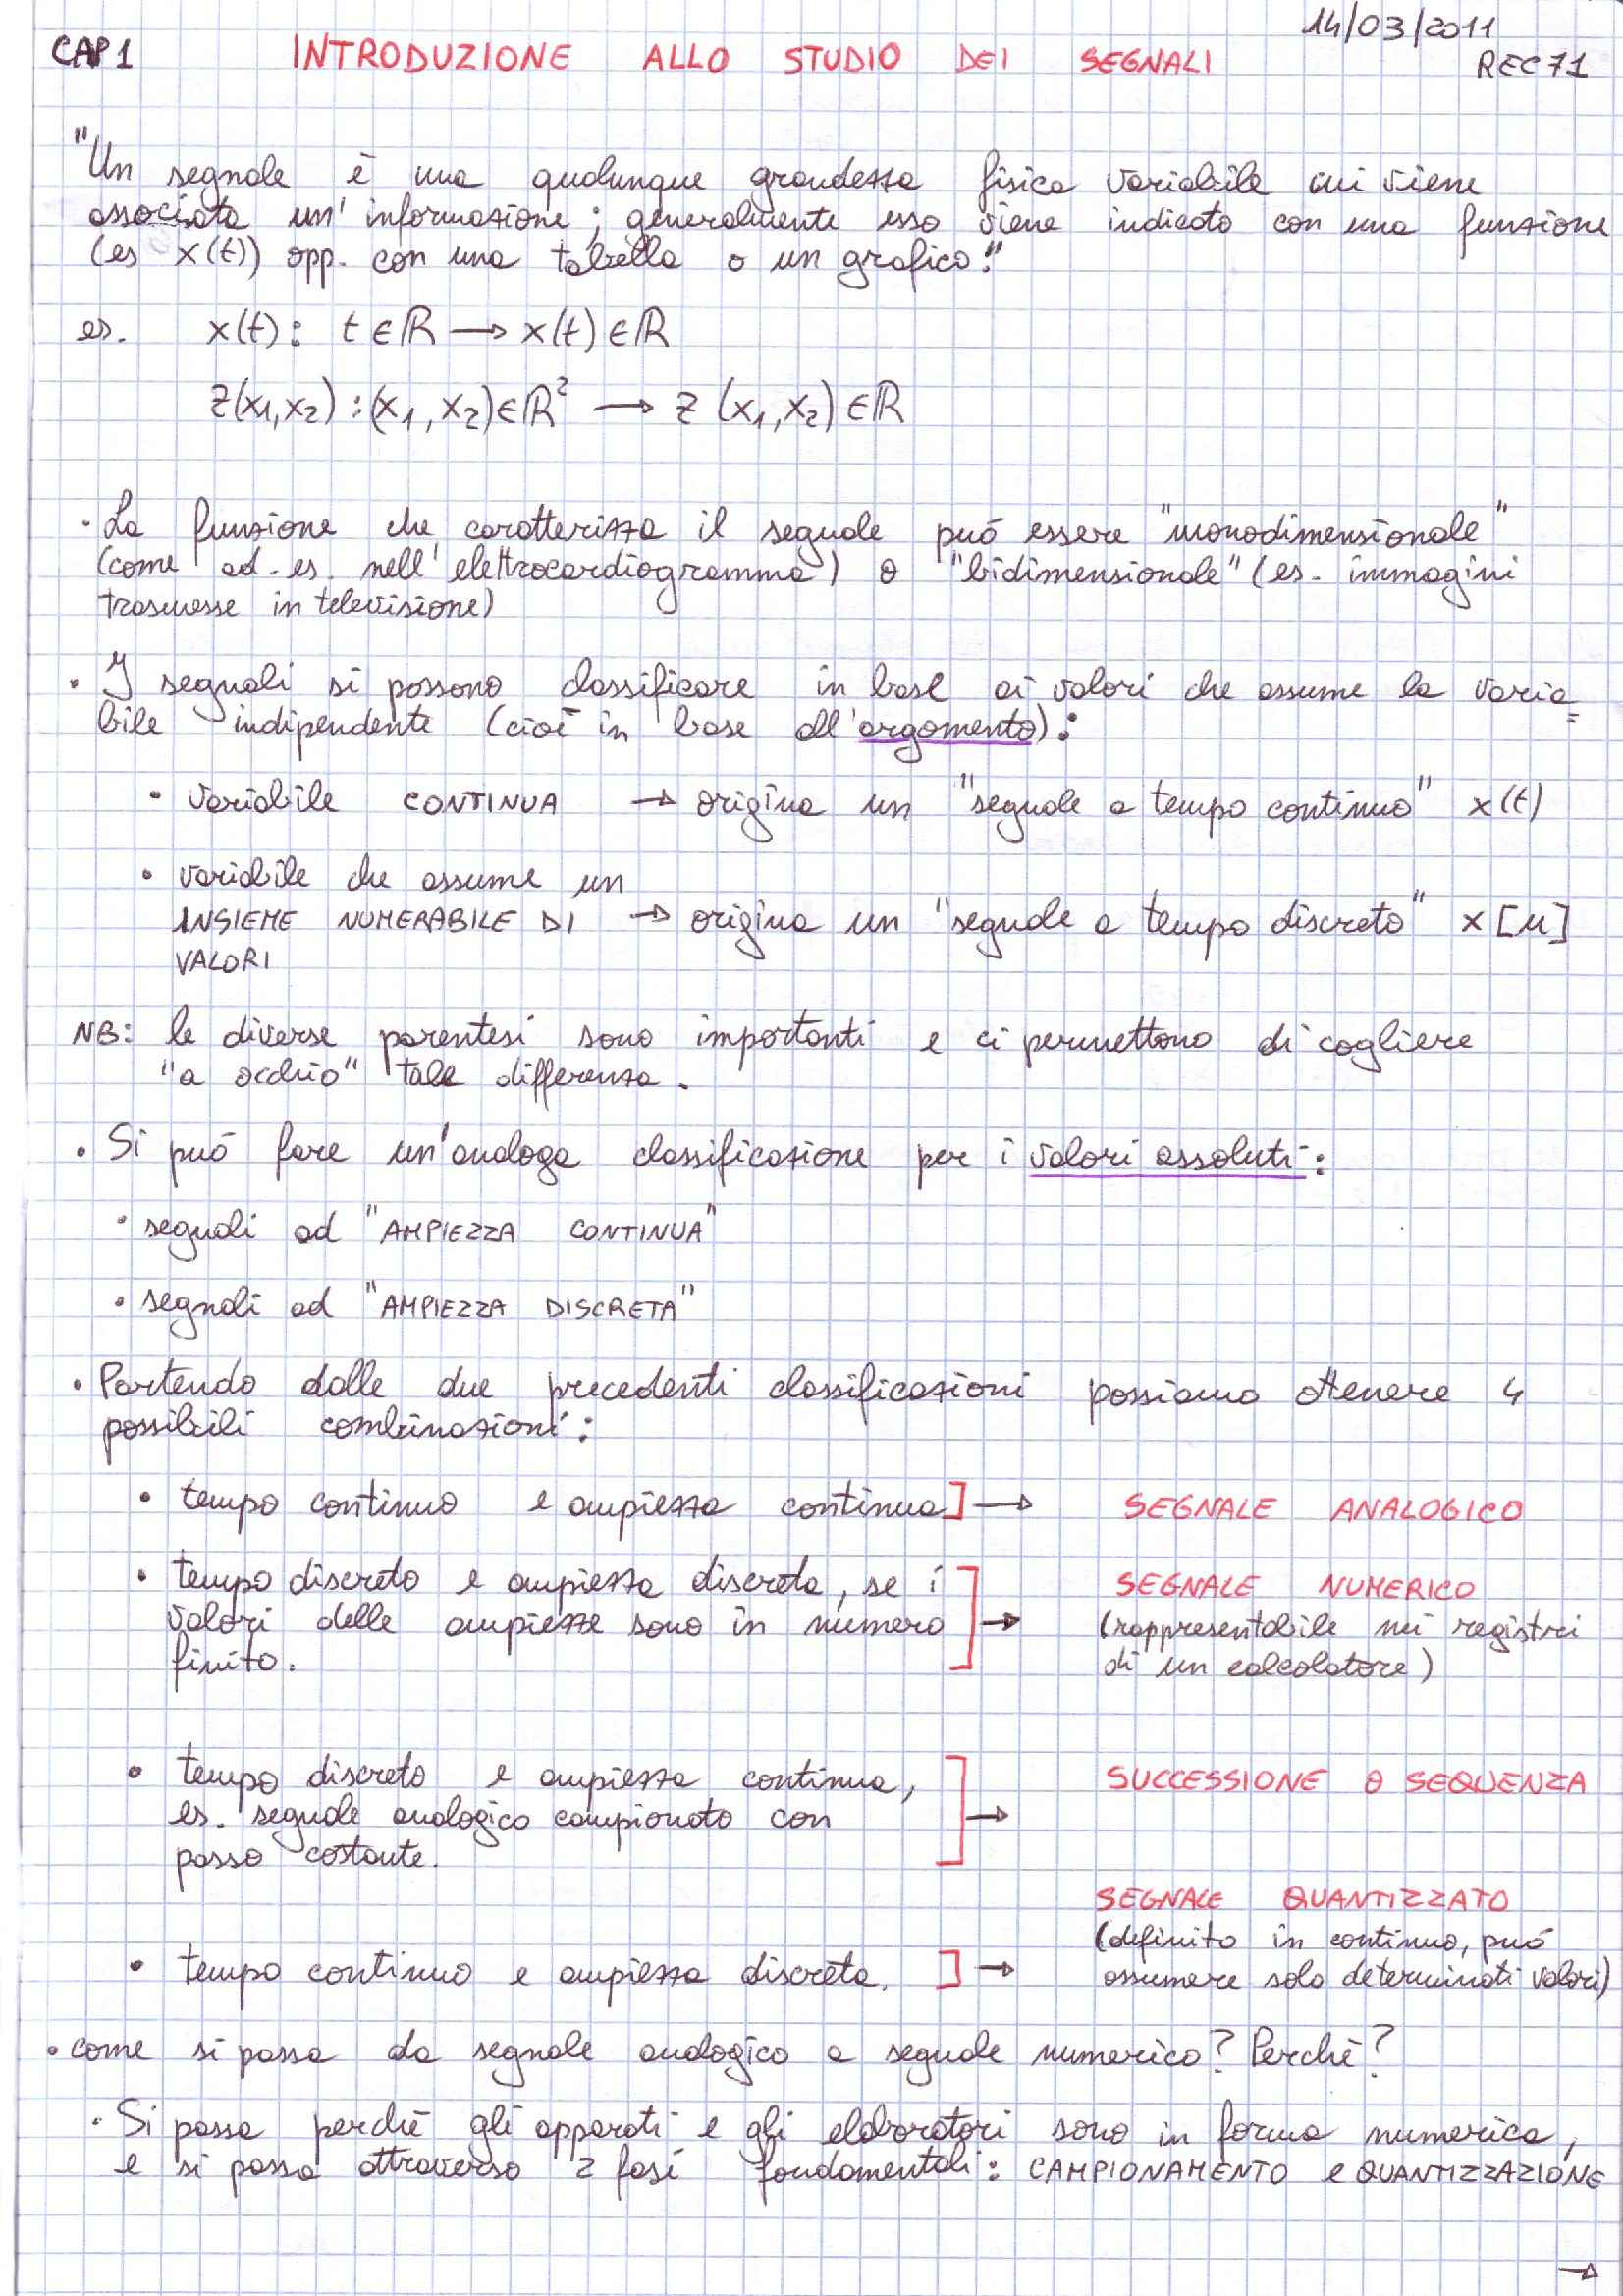 14/03/2011
CAP 1 INTRODUZIONE ALLO STUDIO DEI SEGNALI REC 71
"Un segnale è una qualunque grandezza fisica variabile cui viene
associata un'informazione; generalmente esso viene indicato con una funzione
(es x(t)) opp. con una tabella o un grafico."
es. x(t): t∈ℝ → x(t)∈ℝ
z(x₁,x₂):(x₁,x₂)∈ℝ² → z(x₁,x₂)∈ℝ
• La funzione che caratterizza il segnale può essere "monodimensionale"
(come ad. es. nell'elettrocardiogramma) o "bidimensionale" (es. immagini
trasmesse in televisione)
• I segnali si possono classificare in base ai valori che assume la varia=
bile indipendente (cioè in base all'argomento):
• variabile CONTINUA → origina un "segnale a tempo continuo" x(t)
• variabile che assume un
INSIEME NUMERABILE DI → origina un "segnale a tempo discreto" x[n]
VALORI
NB: le diverse parentesi sono importanti e ci permettono di cogliere
"a occhio" tale differenza.
• Si può fare un'analoga classificazione per i valori assoluti:
• segnali ad "AMPIEZZA CONTINUA"
• segnali ad "AMPIEZZA DISCRETA"
• Partendo dalle due precedenti classificazioni possiamo ottenere 4
possibili combinazioni:
• tempo continuo e ampiezza continua] → SEGNALE ANALOGICO
• tempo discreto e ampiezza discreta, se i SEGNALE NUMERICO
valori delle ampiezze sono in numero → (rappresentabile nei registri
finito. di un calcolatore)
• tempo discreto e ampiezza continua, SUCCESSIONE O SEQUENZA
es. segnale analogico campionato con →
passo costante.
SEGNALE QUANTIZZATO
(definito in continuo, può
• tempo continuo e ampiezza discreta. ] → assumere solo determinati valori)
• come si passa da segnale analogico a segnale numerico? Perchè?
• Si passa perchè gli apparati e gli elaboratori sono in forma numerica,
e si passa attraverso 2 fasi fondamentali: CAMPIONAMENTO e QUANTIZZAZIONE
→